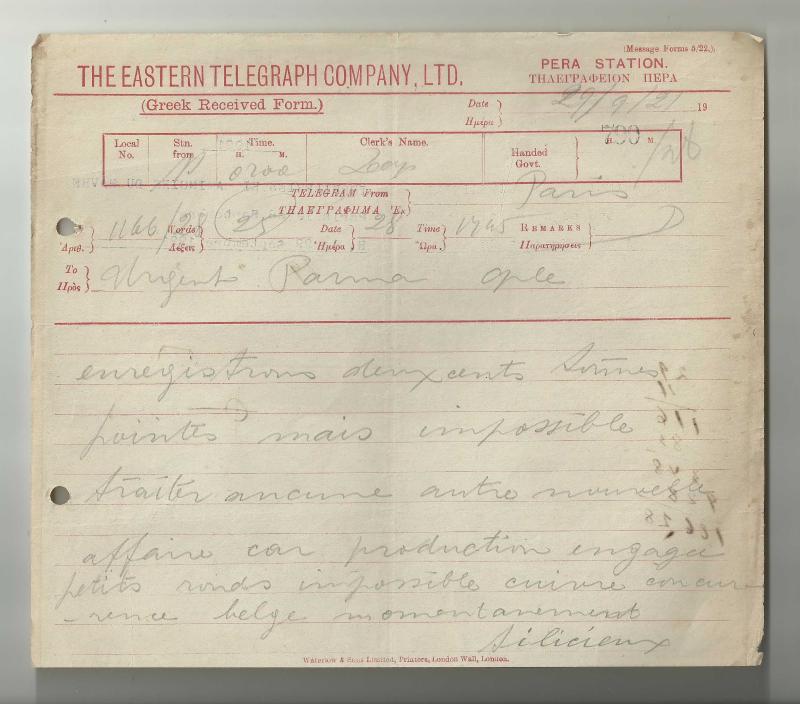 (Message Forms 5/22.)
THE EASTERN TELEGRAPH COMPANY, LTD.
PERA STATION.
ΤΗΛΕΓΡΑΦΕΙΟΝ ΠΕΡΑ
(Greek Received Form.)
Date
Ημέρα
29/9/21 19
Local No.
Stn. from
Time.
H. M.
0700
Clerk's Name.
Handed Govt.
H. M.
700
TELEGRAM From
ΤΗΛΕΓΡΑΦΗΜΑ Ἐκ
Paris
Ἀριθ. 1166/28
Words
Λέξεις 25
Date
Ἡμέρα 28
Time
Ὥρα. 1745
REMARKS
Παρατηρησεις
D
To
Πρὸς
Urgent Parma Cple
enregistrons deuxcents tonnes
pointes mais impossible
traiter aucune autre nouvelle
affaire car production engagee
petits ronds impossible cuivre concur
-rence belge momentanement
Silicieux
Waterlow & Sons Limited, Printers, London Wall, London.